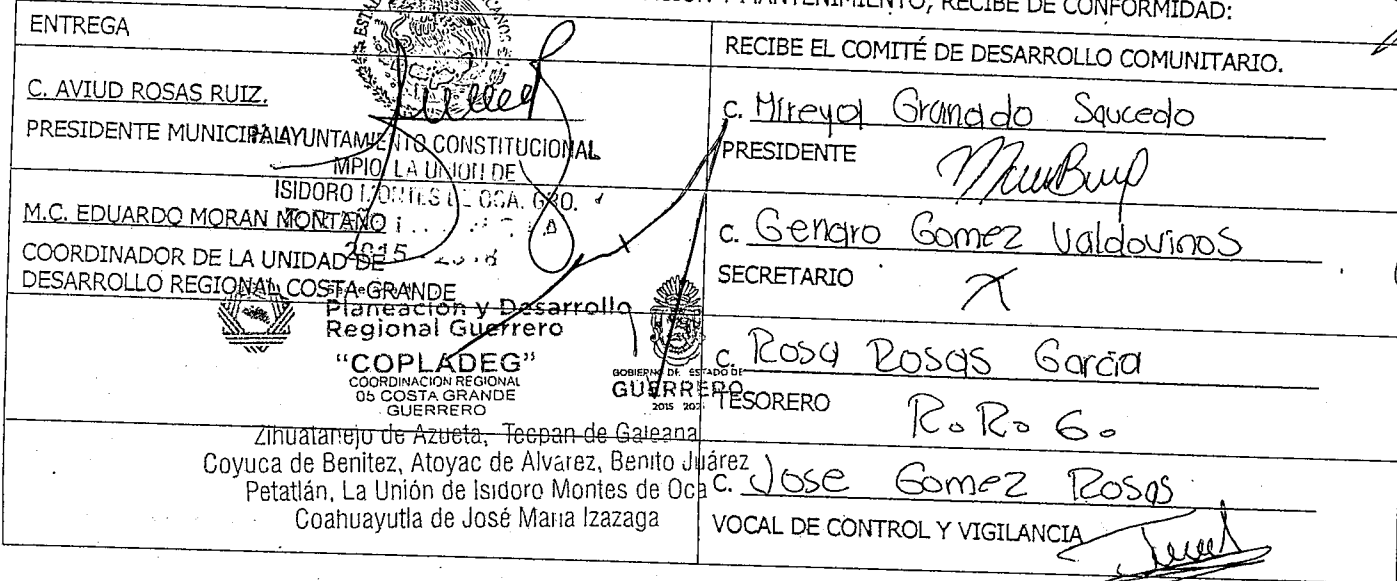 Y MANTENIMIENTO, RECIBE DE CONFORMIDAD:
ENTREGA
C. AVIUD ROSAS RUIZ.
PRESIDENTE MUNICIPAL
H. AYUNTAMIENTO CONSTITUCIONAL
MPIO. LA UNION DE
ISIDORO MONTES DE OCA. GRO.
2015 - 2018
M.C. EDUARDO MORAN MONTAÑO
COORDINADOR DE LA UNIDAD DE
DESARROLLO REGIONAL COSTA GRANDE
Planeación y Desarrollo
Regional Guerrero
"COPLADEG"
COORDINACION REGIONAL
05 COSTA GRANDE
GUERRERO
GOBIERNO DEL ESTADO DE
GUERRERO
2015 202
Zihuatanejo de Azueta, Tecpan de Galeana
Coyuca de Benitez, Atoyac de Alvarez, Benito Juárez
Petatlán, La Unión de Isidoro Montes de Oca
Coahuayutla de José Maria Izazaga
RECIBE EL COMITÉ DE DESARROLLO COMUNITARIO.
C. Mireya Granado Saucedo
PRESIDENTE
C. Genaro Gomez Valdovinos
SECRETARIO
X
C. Rosa Rosas Garcia
TESORERO
R.o R.o G.o
C. Jose Gomez Rosas
VOCAL DE CONTROL Y VIGILANCIA